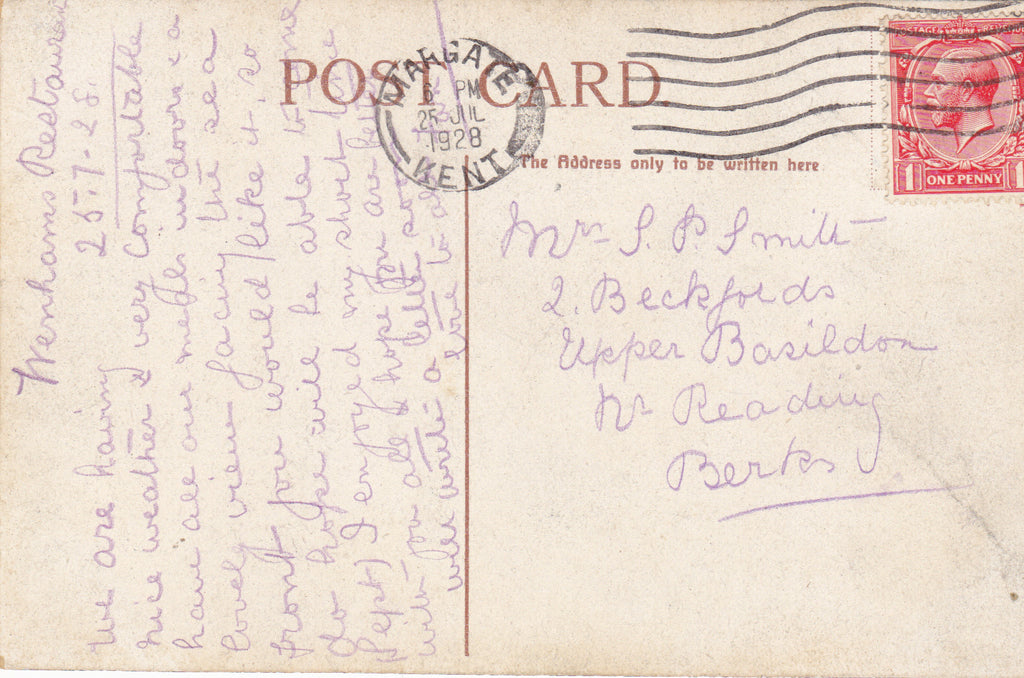 POST CARD
MARGATE
6 PM
25 JUL
1928
KENT
The Address only to be written here
1 ONE PENNY 1
Mrs S. P. Smith
2. Beckfords
Upper Basildon
Nr Reading
Berks
Wenhams Restaurant
25.7.28.
We are having
nice weather & very Comfortable
have all our meals indoors &
lovely view facing the sea
front you would like it so
do hope will be able to come
Sept) I enjoyed my short
with you all hope you are
will write a letter
love to all